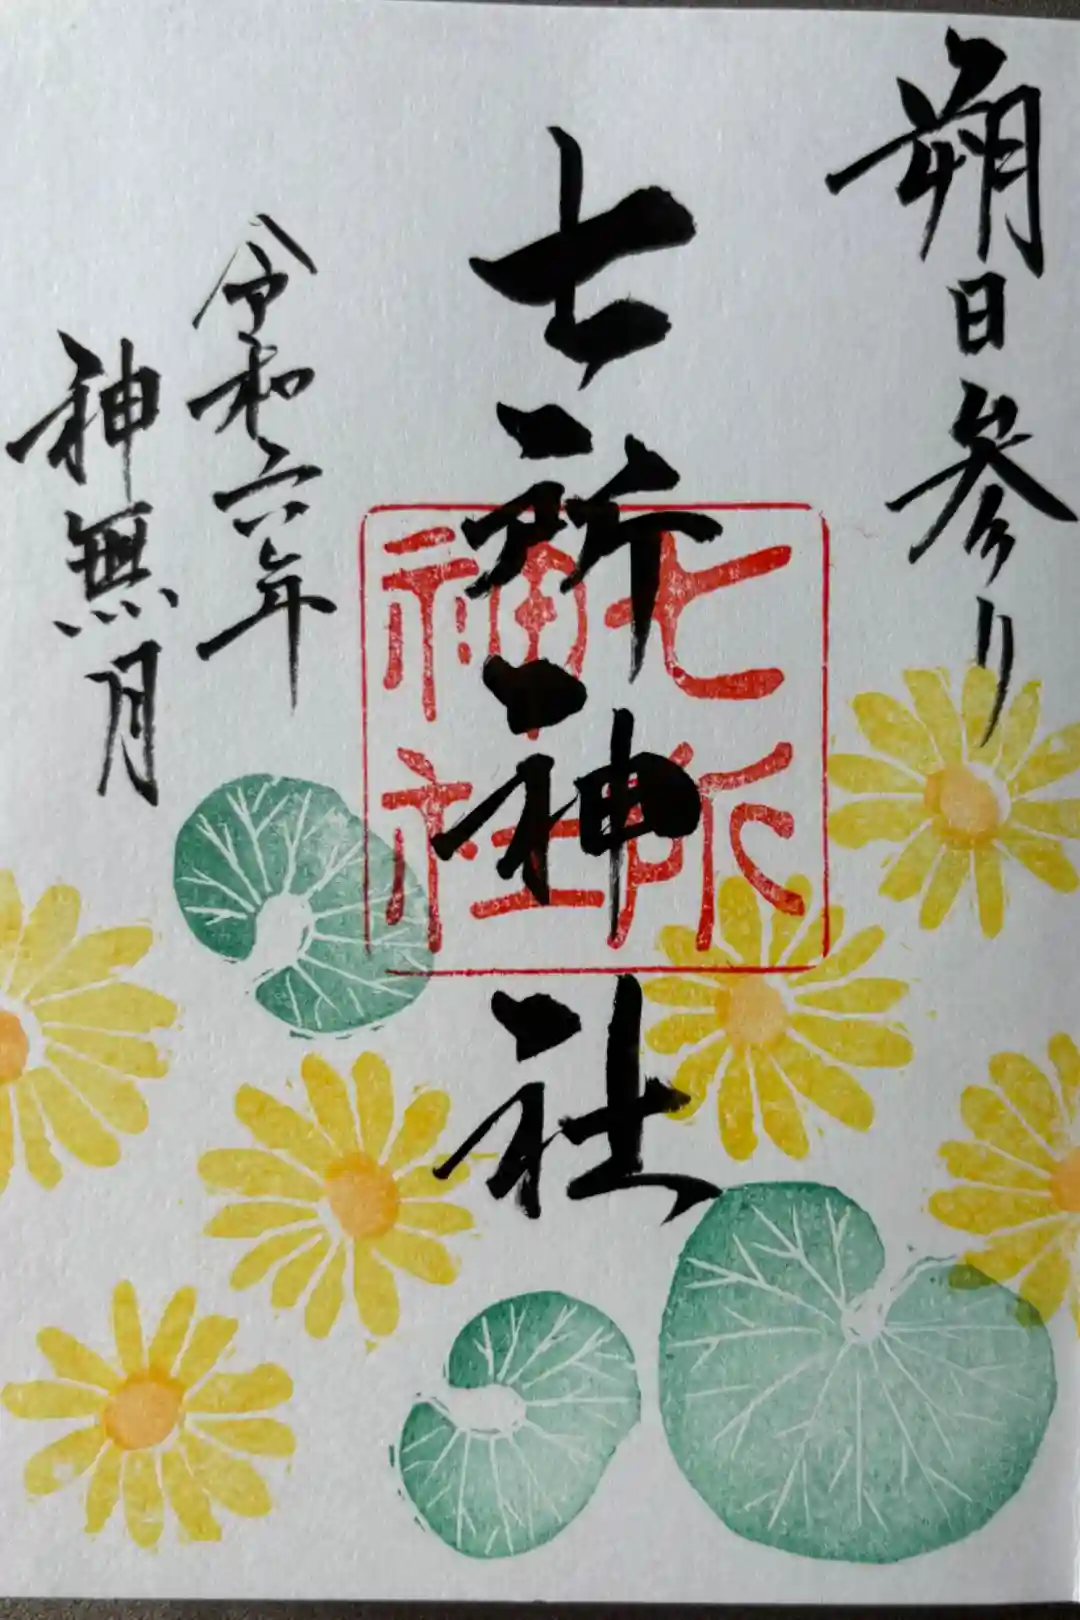 朔日参り
七所神社
七所
神社
令和六年
神無月